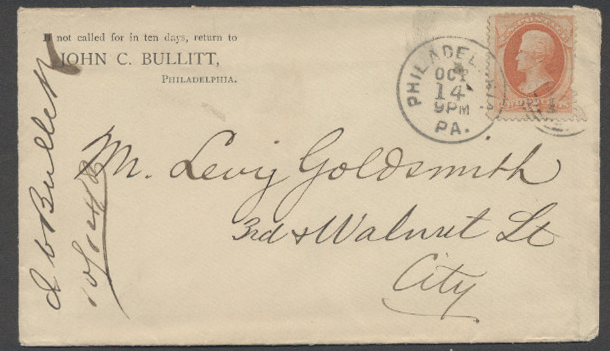 If not called for in ten days, return to
JOHN C. BULLITT,
PHILADELPHIA.
PHILADELPHIA
OCT
14
9PM
PA.
M. Levi Goldsmith
3rd & Walnut St
City
J C Bullitt